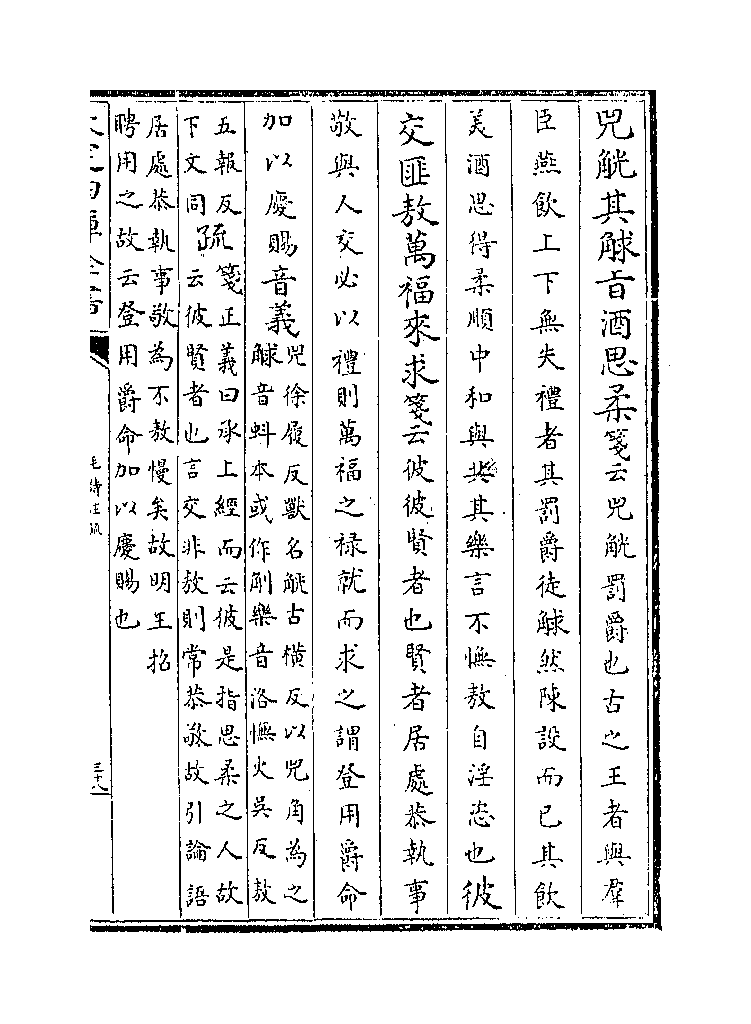 兕觥其觩旨酒思柔箋云兕觥罰爵也古之王者與羣
臣燕飲上下無失禮者其罰爵徒觩然陳設而已其飲
美酒思得柔順中和與共其樂言不憮敖自淫恣也彼
交匪敖萬福來求箋云彼彼賢者也賢者居處恭執事
敬與人交必以禮則萬福之祿就而求之謂登用爵命
加以慶賜音義
兕徐履反獸名觥古橫反以兕角為之
觩音虯本或作觓樂音洛憮火吳反敖
五報反
下文同
疏
箋正義曰承上經而云彼是指思柔之人故
云彼賢者也言交非敖則常恭敬故引論語
居處恭執事敬為不敖慢矣故明王招
聘用之故云登用爵命加以慶賜也
毛詩注疏
三十八